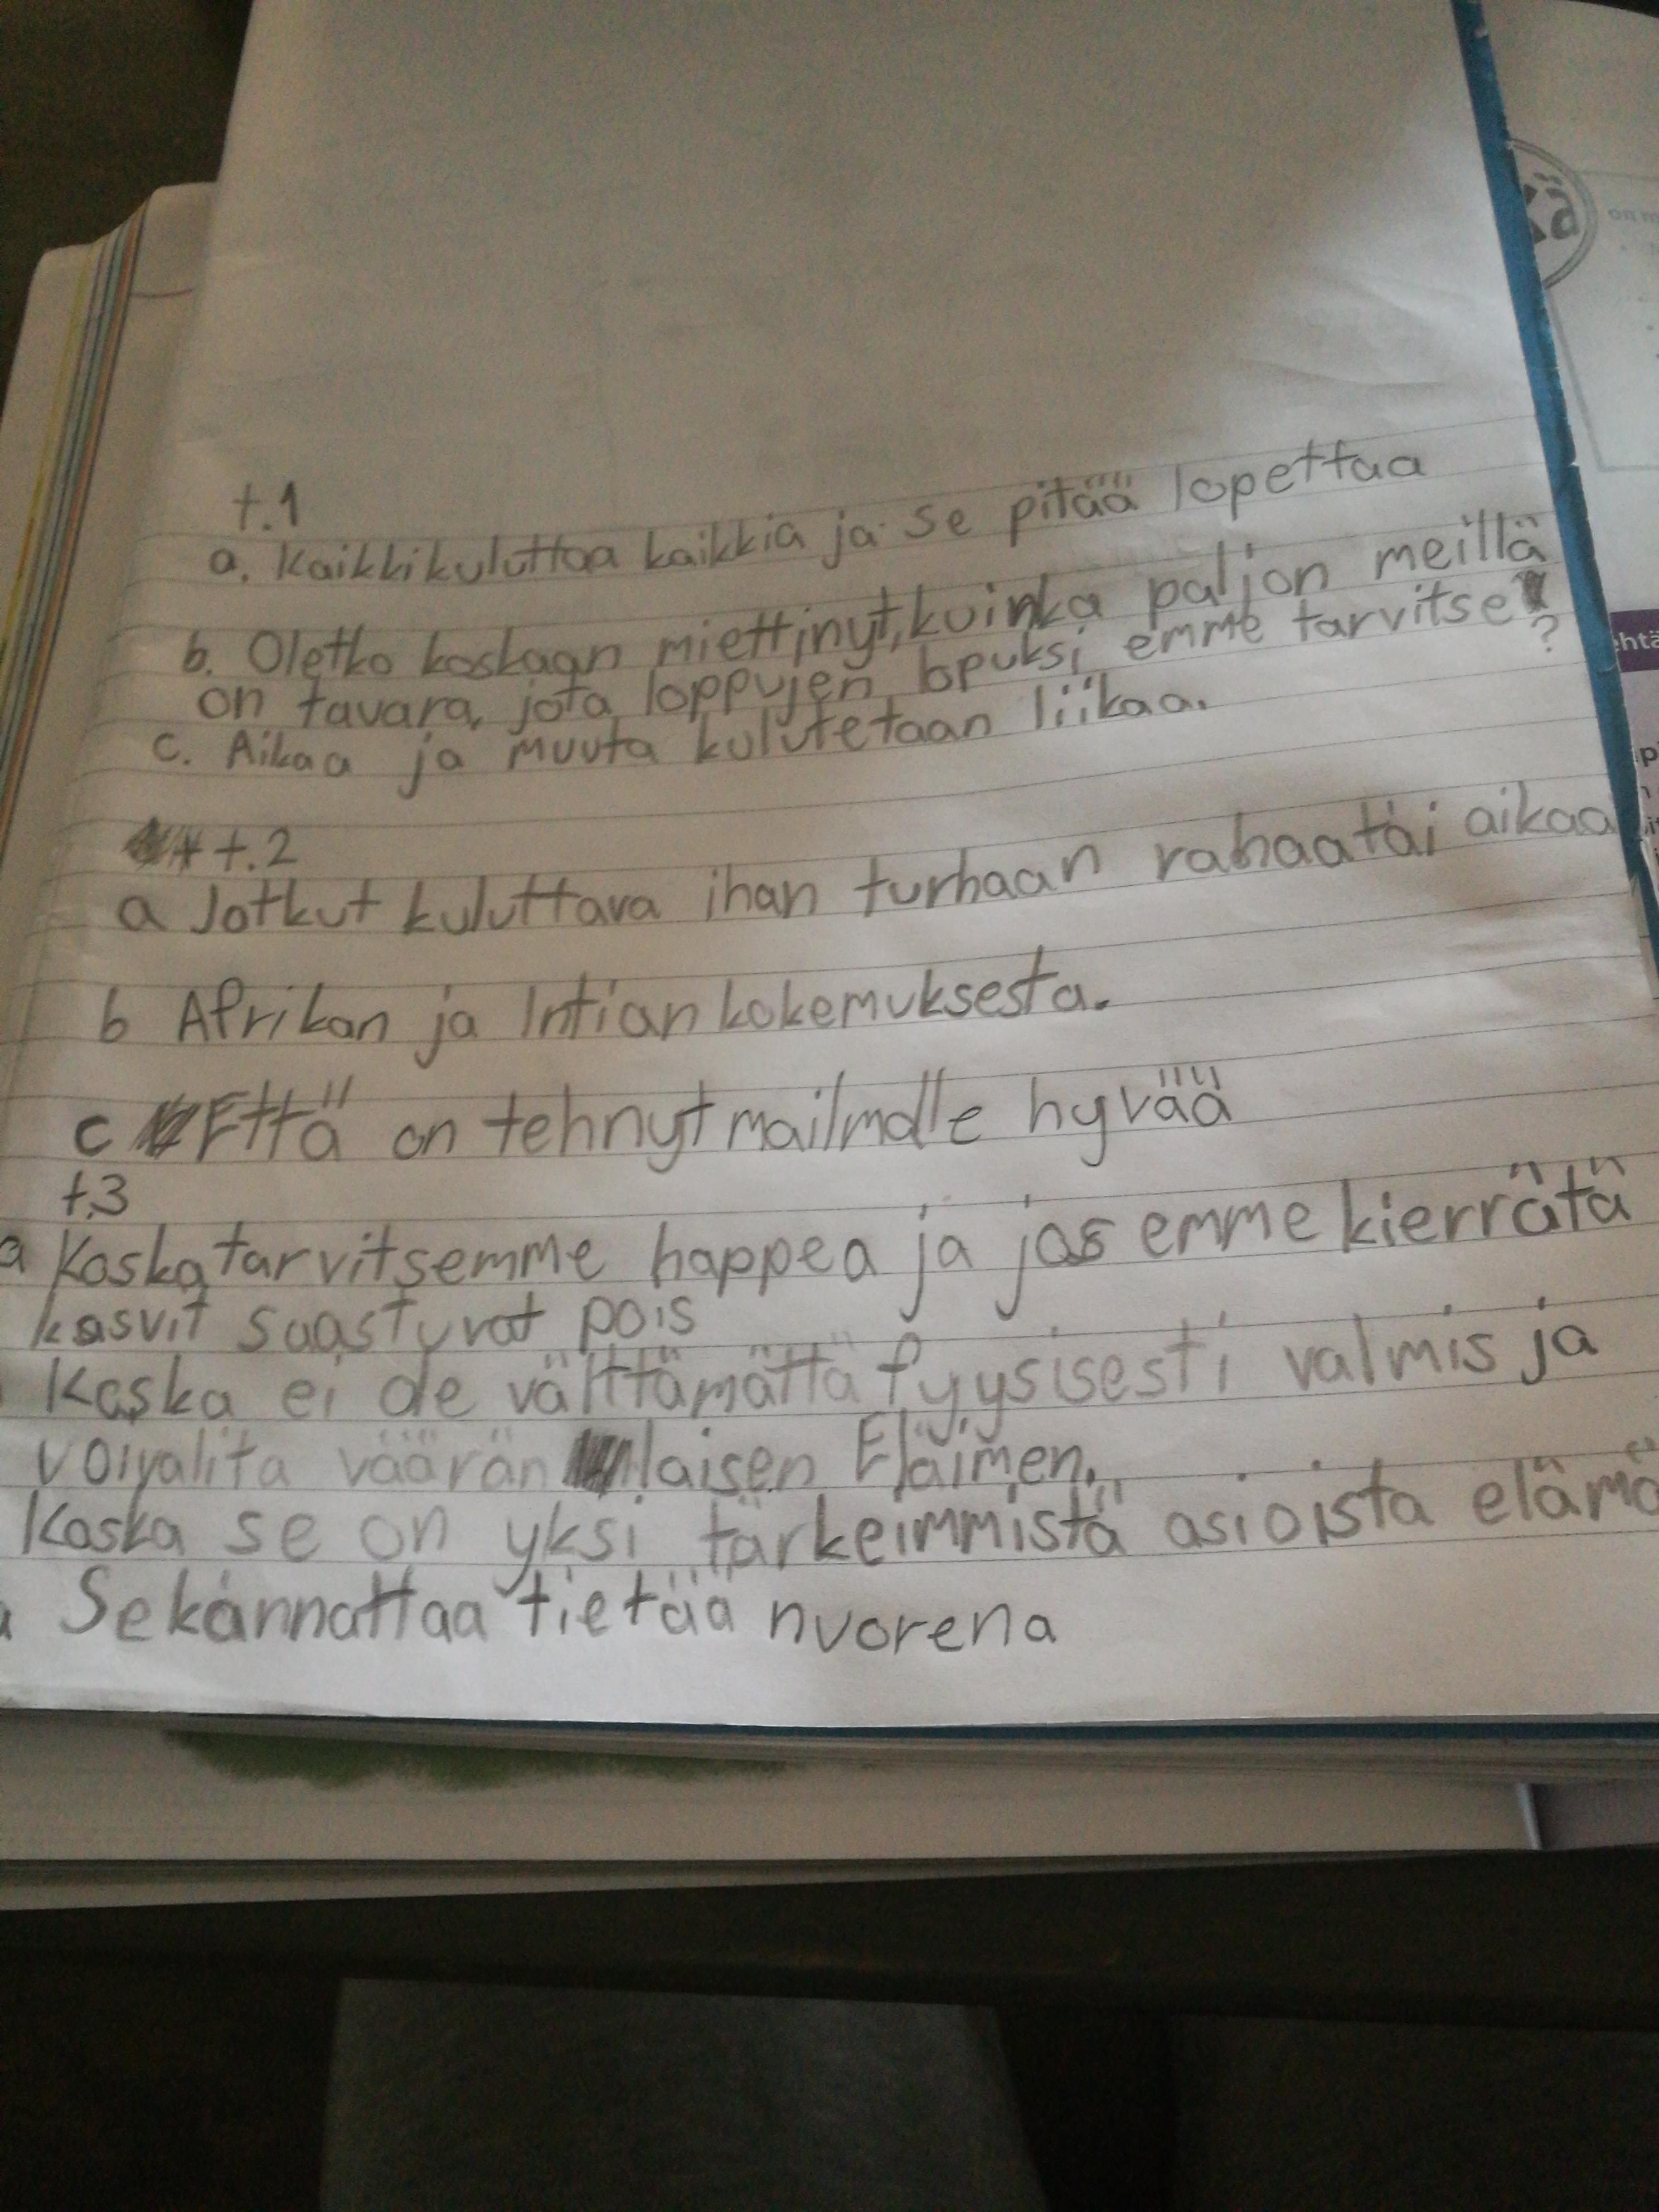 t.1
a. Kaikki kuluttaa kaikkia ja se pitää lopettaa
b. Oletko koskaan miettinyt, kuinka paljon meillä
on tavara, jota loppujen lopuksi emme tarvitse?
c. Aikaa ja muuta kulutetaan liikaa.
t.2
a Jotkut kuluttava ihan turhaan rahaa tai aikaa
b Afrikan ja Intian kokemuksesta.
c Että on tehnyt mailmalle hyvää
t.3
a Koska tarvitsemme happea ja jos emme kierrätä
kasvit saastuvat pois
Koska ei ole välttämättä fyysisesti valmis ja
voi valita väärän laisen Eläimen.
Koska se on yksi tärkeimmistä asioista elämä
Se kannattaa tietää nuorena
kä
on m
ehtä